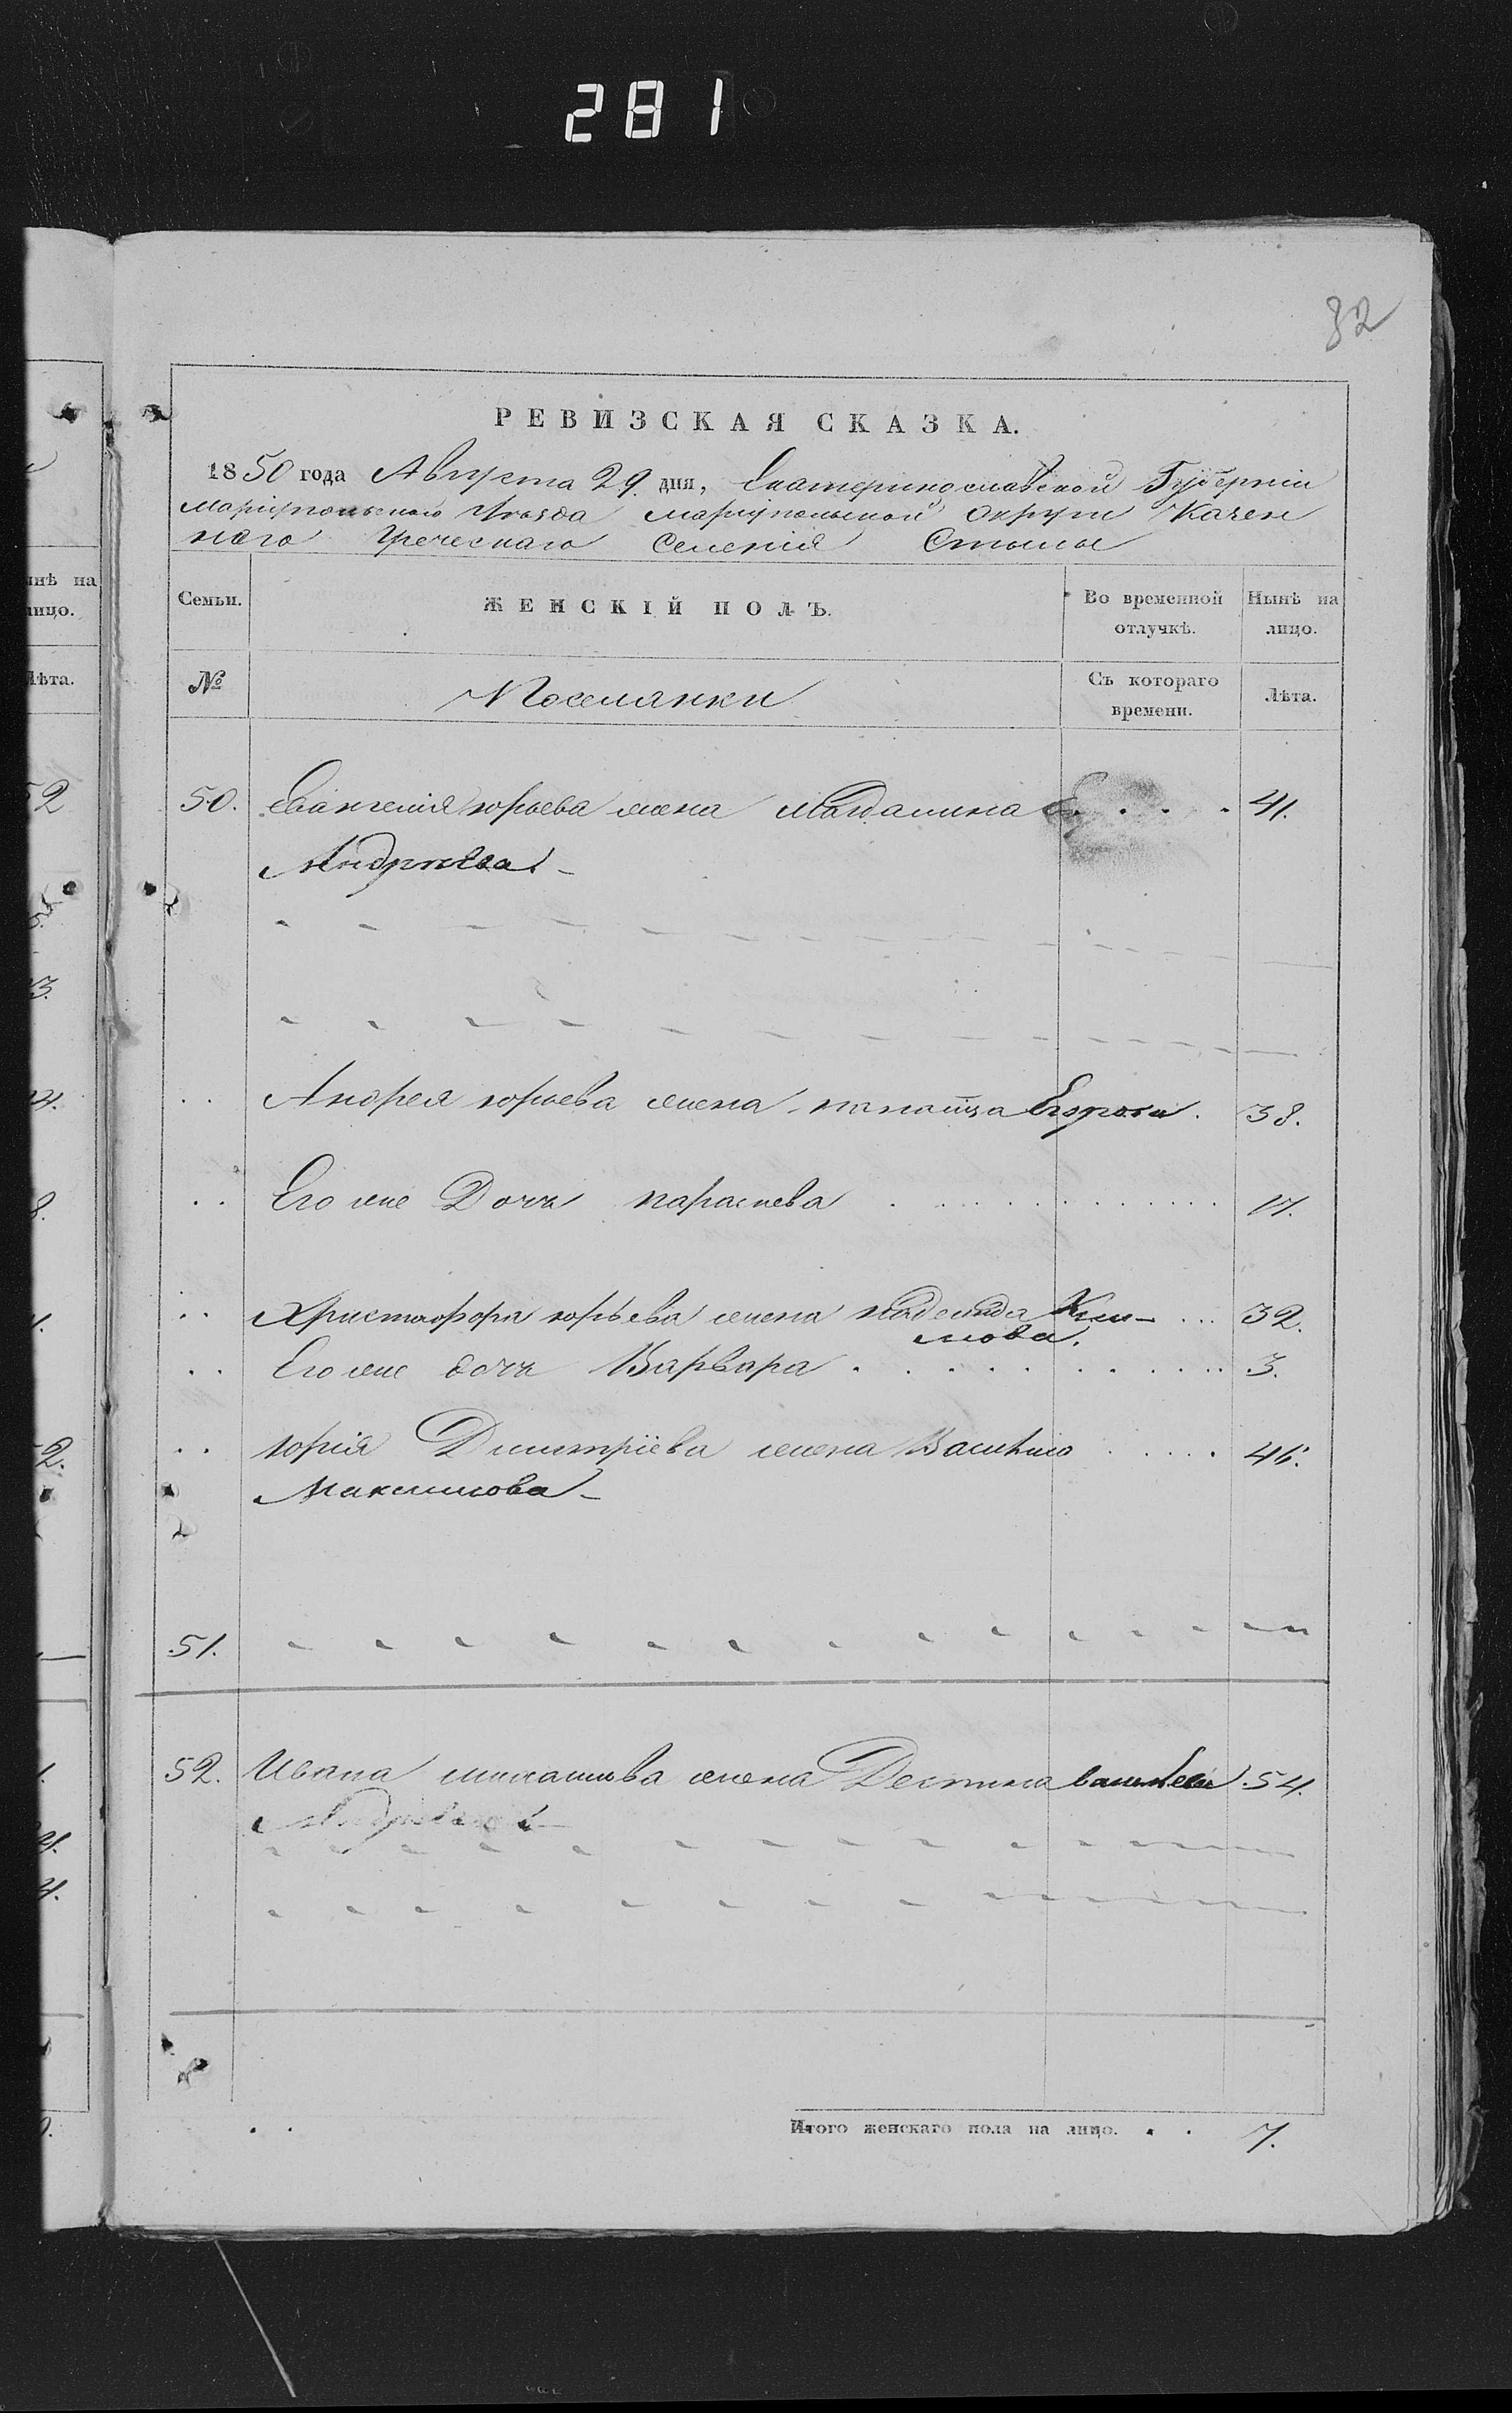 281
32
РЕВИЗСКАЯ СКАЗКА.
1850 года Августа 29 дня, Екатеринославской Губерніи
Маріупольскаго Уѣзда Маріупольской Округи Казен
наго Греческаго Селенія Стылы
Семьи.
ЖЕНСКІЙ ПОЛЪ.
Во временной отлучкѣ.
Нынѣ на лицо.
№
Поселянки
Съ котораго времени.
Лѣта.
50. Евангелія юрьева жена Магдалина 41.
Андреева
Андрея юрьева жена Егорова. 38.
Его же Дочь параскева 17.
Христофора юрьева жена надежда Кли- 32.
мова.
Его же дочь Варвара 3.
юрія Дмитріева жена Василиса 46.
Максимова
51.
52. Ивана жена Деспина 54.
Итого женскаго пола на лицо. 7.